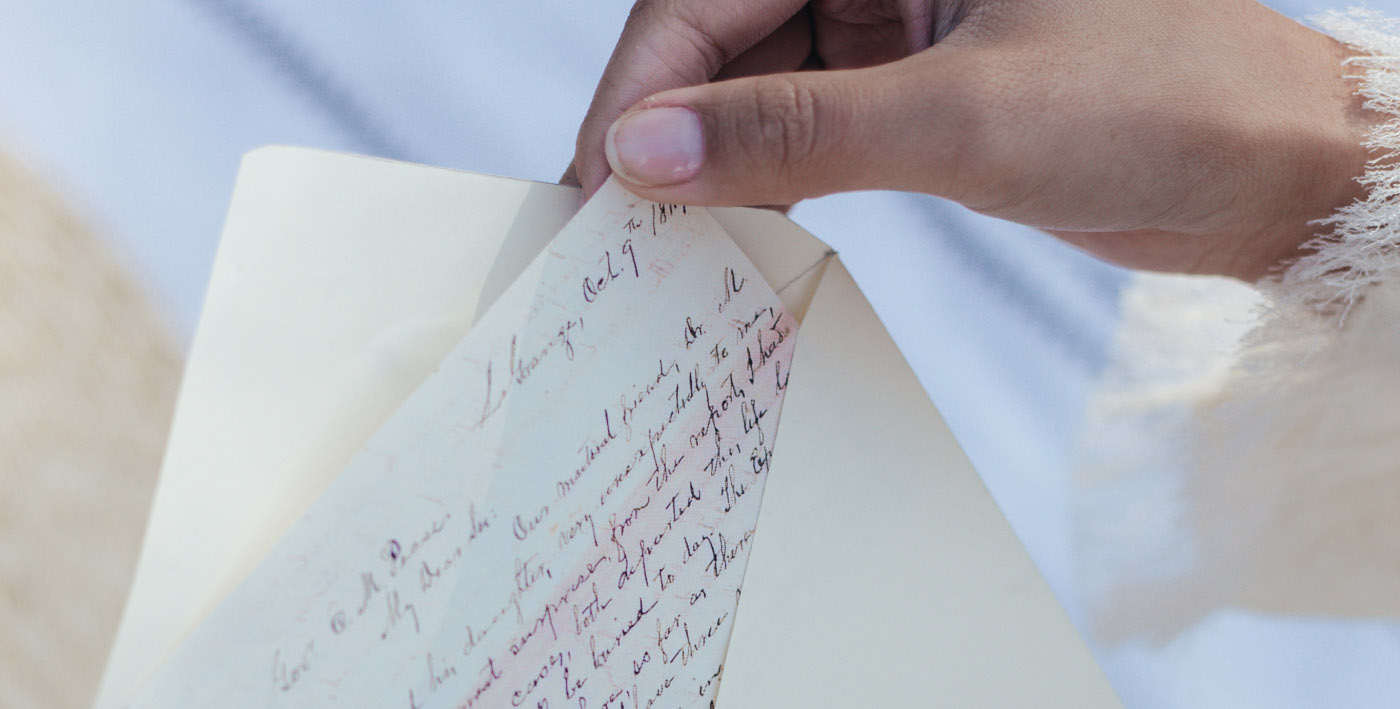 La Grange, Oct. 9th 18
Gov. E. M. Pease.
My Dear Sir:
Our mutual friend, Dr. M
his daughter, very unexpectedly to me,
most surprised, from the report, I had
case, both departed this life
be buried to day. The
so far as there
have three
in